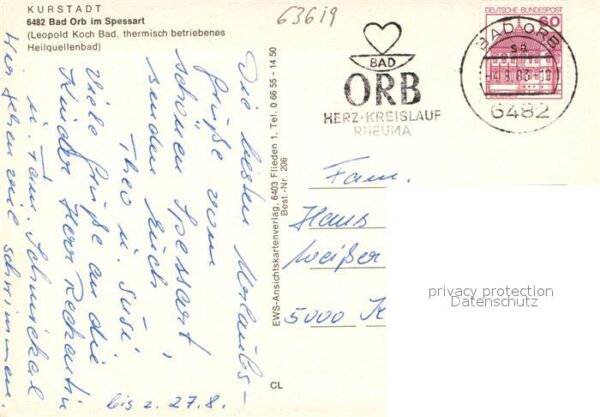 KURSTADT
6482 Bad Orb im Spessart
(Leopold Koch Bad, thermisch betriebenes
Heilquellenbad)
63619
DEUTSCHE BUNDESPOST
60
BAD ORB
6482
BAD
ORB
HERZ·KREISLAUF
RHEUMA
Die besten Urlaubs-
grüße vom
schönen Spessart
senden Euch
Theo u. Susi
Viele Grüße an die
Kinder, Herr
u. Fam.
Wir gehen viel schwimmen.
bis z. 27.8.
EWS-Ansichtskartenverlag, 6403 Flieden 1, Tel. 0 66 55 - 14 50
Best.-Nr. 206
CL
Fam.
Hans
Weißer
5000 K
privacy protection
Datenschutz